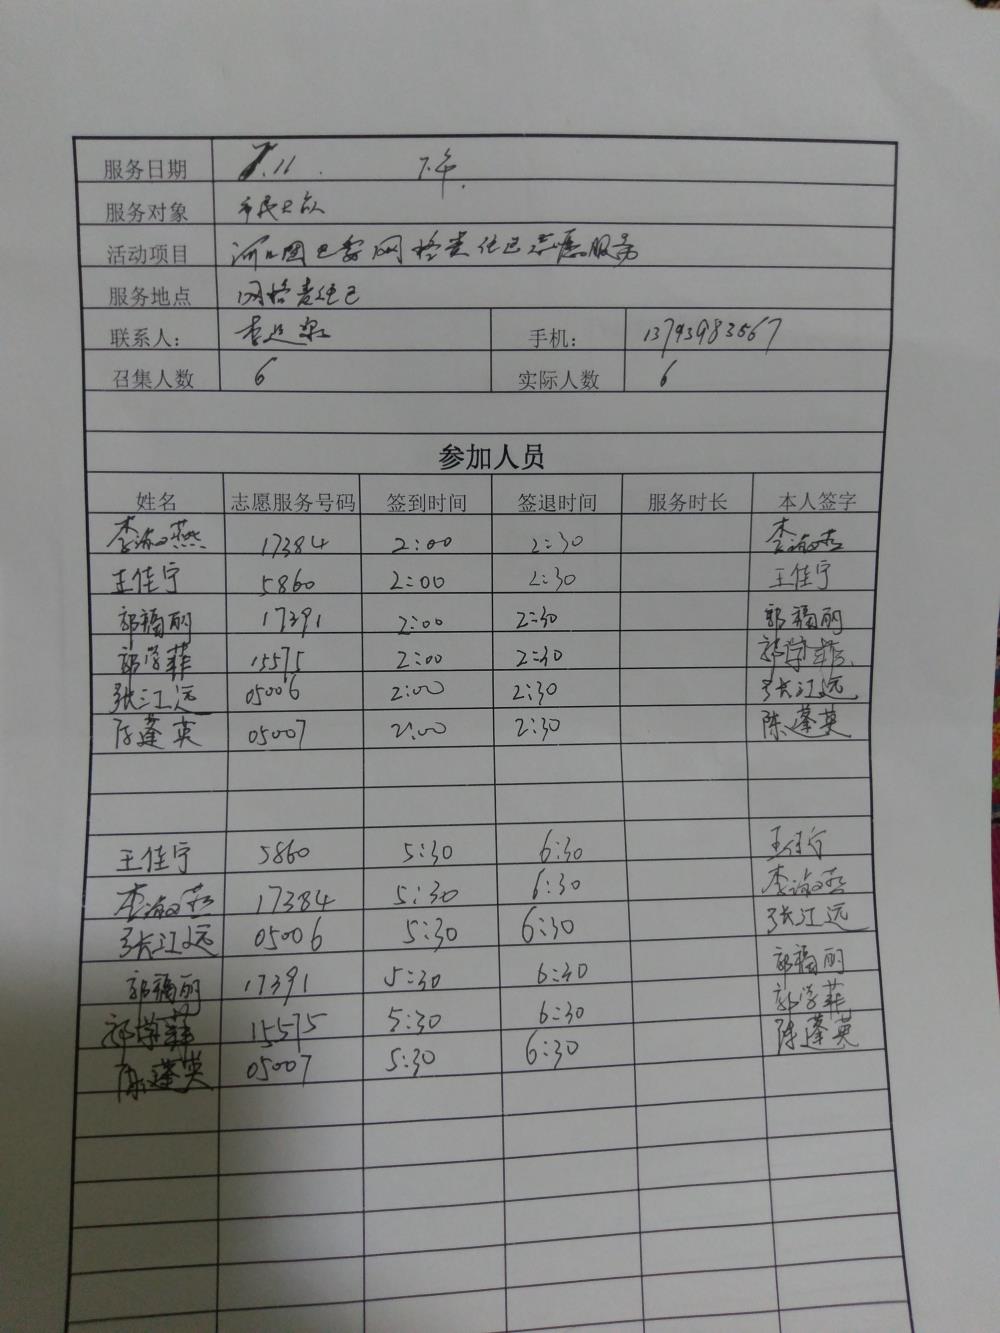 服务日期 7.11. 下午.
服务对象 市民
活动项目 网格责任区志愿服务
服务地点 网格责任区
联系人： 手机： 13793983567
召集人数 6 实际人数 6
参加人员
姓名 志愿服务号码 签到时间 签退时间 服务时长 本人签字
李淑燕 17384 2:00 2:30 李淑燕
王佳宁 5860 2:00 2:30 王佳宁
郭福丽 17391 2:00 2:30 郭福丽
郭学菲 15575 2:00 2:30 郭学菲
张江远 05006 2:00 2:30 张江远
陈蓬英 05007 2:00 2:30 陈蓬英
王佳宁 5860 5:30 6:30 王佳宁
李淑燕 17384 5:30 6:30 李淑燕
张江远 05006 5:30 6:30 张江远
郭福丽 17391 5:30 6:30 郭福丽
郭学菲 15575 5:30 6:30 郭学菲
陈蓬英 05007 5:30 6:30 陈蓬英